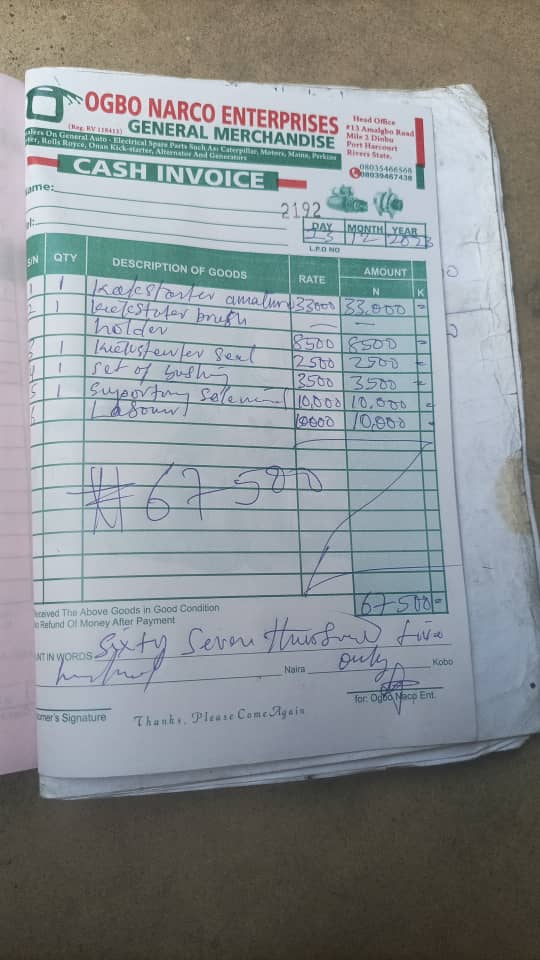 OGBO NARCO ENTERPRISES
(Reg. RV 118411) GENERAL MERCHANDISE
alers On General Auto - Electrical Spare Parts Such As: Caterpillar, Motors, Mains, Perkins
ter, Rolls Royce, Onan Kick-starter, Alternator And Generators
Head Office
#13 Amaigbo Road
Mile 3 Diobu
Port Harcourt
Rivers State.
08035466568
08039467438
CASH INVOICE
ame:
2192
DAY MONTH YEAR
23 12 2023
L.P.O NO
S/N QTY DESCRIPTION OF GOODS RATE AMOUNT
N K
1 1 33000 33,000 =
2 1 kickstater brush
holder 8500 8500 =
3 1 kickstarter seal 2500 2500 =
4 1 set of bushing 3500 3500 =
5 1 supporting 10,000 10,000 =
6 Labour 10000 10,000 =
₦67-500
67-500=
eceived The Above Goods in Good Condition
o Refund Of Money After Payment
NT IN WORDS Sixty Seven thousand five
hundred Naira only Kobo
for: Ogbo Naco Ent.
omer's Signature Thanks, Please Come Again